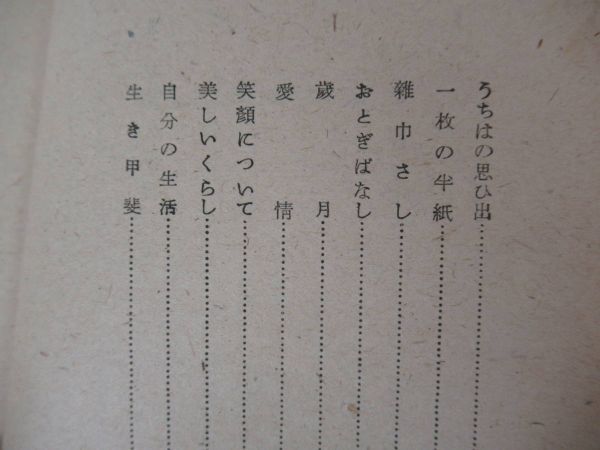 うちはの思ひ出
一枚の半紙
雜巾さし
おとぎばなし
歲月
愛情
笑顏について
美しいくらし
自分の生活
生き甲斐